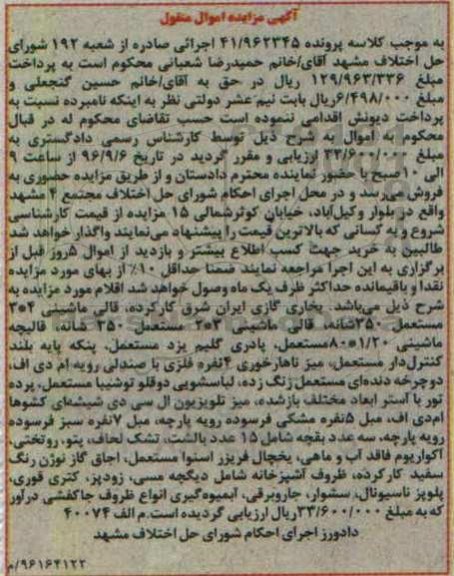 آگهی مزایده اموال منقول
به موجب کلاسه پرونده ۴۱/۹۶۲۳۴۵ اجرائی صادره از شعبه ۱۹۲ شورای
حل اختلاف مشهد آقای/خانم حمیدرضا شعبانی محکوم است به پرداخت
مبلغ ۱۲۹/۹۶۳/۳۳۶ ریال در حق به آقای/خانم حسین گنجعلی و
مبلغ ۶/۴۹۸/۰۰۰ریال بابت نیم عشر دولتی نظر به اینکه نامبرده نسبت به
پرداخت دیونش اقدامی ننموده است حسب تقاضای محکوم له در قبال
محکوم به اموال به شرح ذیل توسط کارشناس رسمی دادگستری به
مبلغ ۳۳/۶۰۰/۰۰۰ ارزیابی و مقرر گردید در تاریخ ۹۶/۹/۶ از ساعت ۹
الی ۱۰صبح با حضور نماینده محترم دادستان و از طریق مزایده حضوری به
فروش می‌رسد و در محل اجرای احکام شورای حل اختلاف مجتمع ۴ مشهد
واقع در بلوار وکیل‌آباد، خیابان کوثرشمالی ۱۵ مزایده از قیمت کارشناسی
شروع و به کسانی که بالاترین قیمت را پیشنهاد می‌نمایند واگذار خواهد شد
طالبین به خرید جهت کسب اطلاع بیشتر و بازدید از اموال ۵روز قبل از
برگزاری به این اجرا مراجعه نمایند ضمنا حداقل ۱۰٪ از بهای مورد مزایده
نقدا و باقیمانده حداکثر ظرف یک ماه وصول خواهد شد اقلام مورد مزایده به
شرح ذیل می‌باشد. بخاری گازی ایران شرق کارکرده، قالی ماشینی ۴*۳
مستعمل ۳۵۰شانه، قالی ماشینی ۳*۲ مستعمل ۳۵۰ شانه، قالیچه
ماشینی ۱/۲۰*۸۰مستعمل، پادری گلیم یزد مستعمل، پنکه پایه بلند
کنترل‌دار مستعمل، میز ناهارخوری ۴نفره فلزی با صندلی رویه ام دی اف،
دوچرخه دنده‌ای مستعمل زنگ زده، لباسشویی دوقلو توشیبا مستعمل، پرده
تور با آستر ابعاد مختلف بازشده، میز تلویزیون ال سی دی شیشه‌ای کشوها
ام‌دی اف، مبل ۵نفره مشکی فرسوده رویه پارچه، مبل ۷نفره سبز فرسوده
رویه پارچه، سه عدد بقچه شامل ۱۵ عدد بالشت، تشک لحاف، پتو، روتختی،
آکواریوم فاقد آب و ماهی، یخچال فریزر اسنوا مستعمل، اجاق گاز نوژن رنگ
سفید کارکرده، ظروف آشپزخانه شامل دیگچه مسی، زودپز، کتری قوری،
پلوپز ناسیونال، سشوار، جاروبرقی، آبمیوه‌گیری انواع ظروف جاکفشی درآور
که به مبلغ ۳۳/۶۰۰/۰۰۰ریال ارزیابی گردیده است.م الف ۴۰۰۷۴
دادورز اجرای احکام شورای حل اختلاف مشهد
۹۶۱۶۴۱۲۲/م